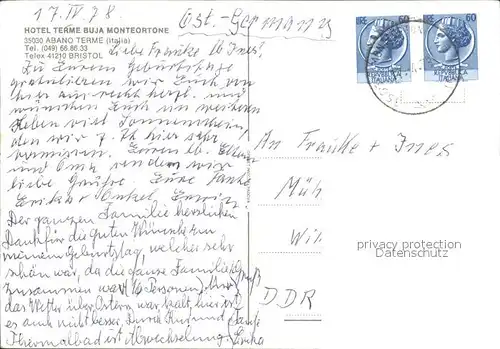 17. IV. 78
Ost-Germany
HOTEL TERME BUJA MONTEORTONE
35030 ABANO TERME (Italia)
Tel. (049) 66.86.33
Telex 41210 BRISTOL
60
60
Liebe Frauke u. Ines!
Zu Eurem Geburtstage
gratulieren wir Euch von
hier aus recht herzl. und
wünschen Euch im weiteren
Leben viel Sonnenschein,
den wir z. Zt. hier sehr
vermissen. Euren lb. Eltern
und Oma von wir
liebe Grüße. Eure Tante
Erika + Onkel Erwin
Der ganzen Familie herzlichen
Dank für die guten Wünsche zu
meinem Geburtstag, welcher sehr
schön war, da die ganze Familie
zusammen war (16 Personen)
das Wetter über Ostern war kalt, hier ist
es auch nicht besser. Durch Kur und
Thermalbad ist Abwechselung.
Gruß
Tante
Erika
An Frauke + Ines
Müh
Wil
DDR
privacy protection
Datenschutz